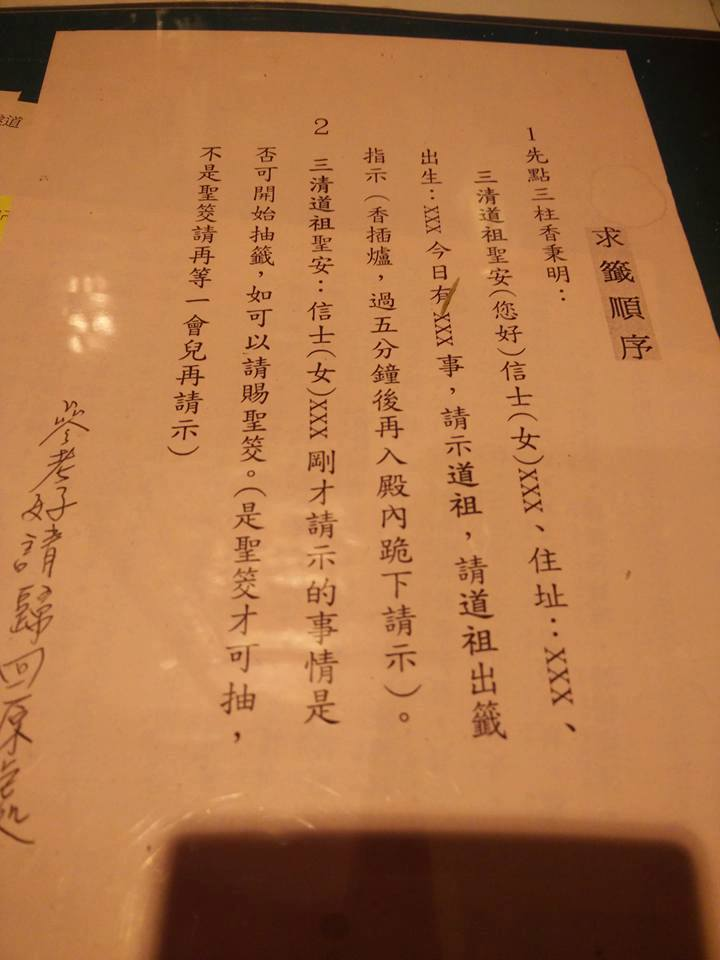 求籤順序
1先點三柱香秉明：
三清道祖聖安(您好)信士(女)XXX、住址：XXX、
出生：XXX 今日有XXX 事，請示道祖，請道祖出籤
指示(香插爐，過五分鐘後再入殿內跪下請示)。
2 三清道祖聖安：信士(女)XXX 剛才請示的事情是
否可開始抽籤，如可以請賜聖筊。(是聖筊才可抽，
不是聖筊請再等一會兒再請示)
參考好請歸回原處
道